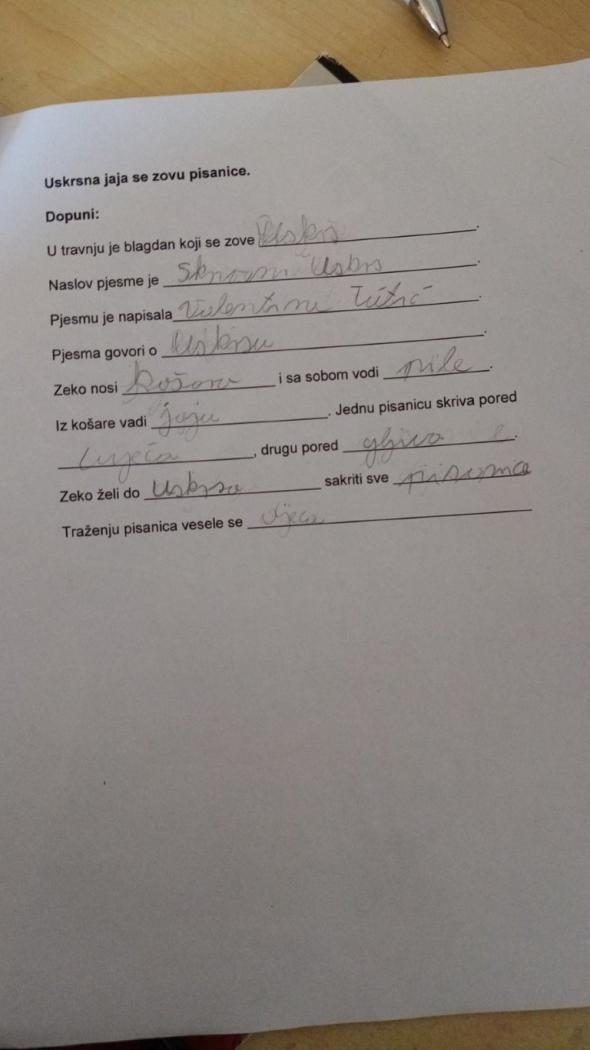 Uskrsna jaja se zovu pisanice.
Dopuni:
U travnju je blagdan koji se zove Uskrs.
Naslov pjesme je Uskrs.
Pjesmu je napisala
Pjesma govori o Uskrsu.
Zeko nosi košaru i sa sobom vodi pile.
Iz košare vadi jaja. Jednu pisanicu skriva pored
cvjeća, drugu pored gljiva.
Zeko želi do Uskrsa sakriti sve pisanice
Traženju pisanica vesele se djeca